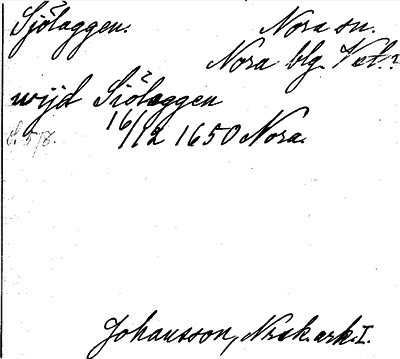 Sjölaggen. Nora sn.
Nora blg. Vstm.
wijd Siölaggen
16/12 1650 Nora.
Johansson, Nrsk. ark. I.